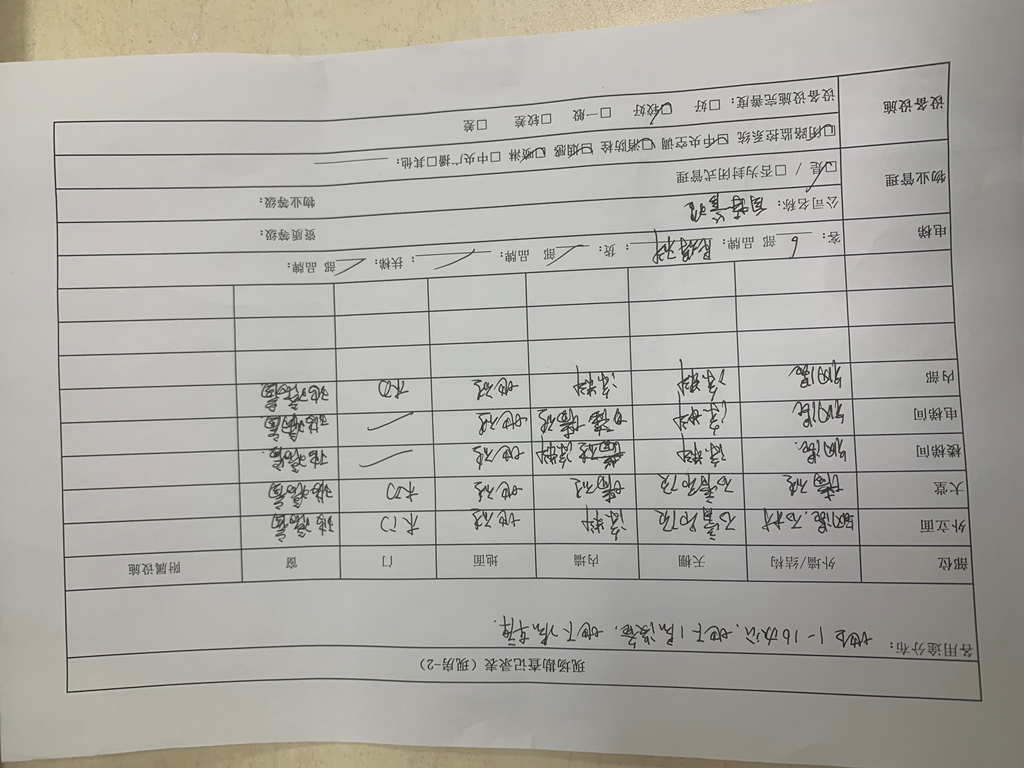 现场勘查记录表（现房-2）
各用途分布： 地上1-16办公、地下1层设备、地下2层车库.
部位 外墙/结构 天棚 内墙 地面 门 窗 附属设施
外立面 钢混、石材 石膏吊顶 涂料 地砖 木门
大堂 墙砖 石膏吊顶 墙砖 地砖 木门
楼梯间 钢混 涂料 涂料 地砖
电梯间 钢混 涂料 墙砖 地砖
内部 钢混 涂料 涂料 地砖 木门
电梯 客： 6 部 品牌： 货： 部 品牌： ；扶梯： 部 品牌：
物业管理 公司名称： 自持管理 资质等级：
☑是 / □否为封闭式管理 物业等级：
设备设施 ☑闭路监控系统 ☑中央空调 ☑消防栓 ☑烟感 ☑喷淋 □中央广播 □其他：
设备设施完善度： □好 ☑较好 □一般 □较差 □差